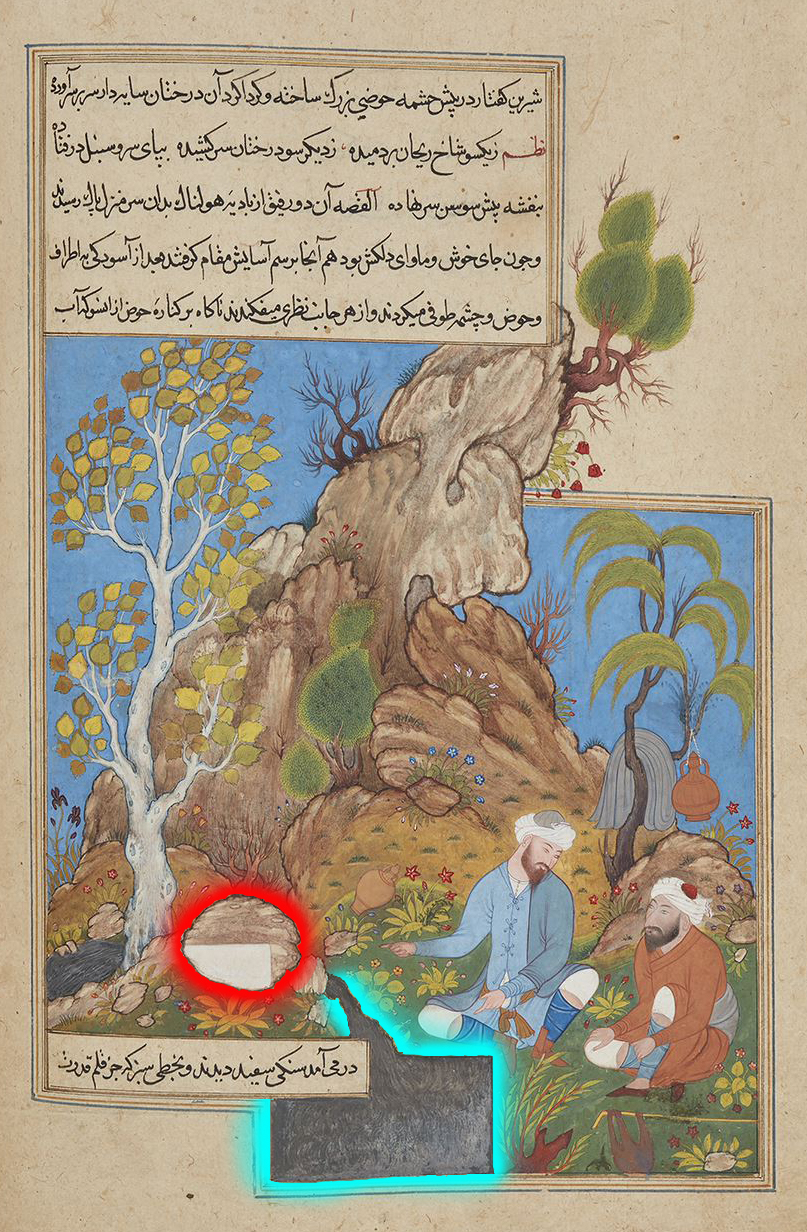 شیرین کفتار در پیش چشمه حوضی بزرک ساخته و کرداکرد آن درختان سایه دار سر بر آورده
نظم زیکسو شاخ ریحان بر دمیده زدیکر سو درختان سر کشیده بپای سرو سنبل در فتاده
بنفشه پیش سوسن سر نهاده القصه آن دو رفیق از بادیهٔ هولناک بدان سر منزل پاک رسیدند
و چون جای خوش و ماوای دلکش بود هم آنجا برسم آسایش مقام کرفتند بعد از آسودکی به اطراف
و حوض و چشمه طوفی میکردند و از هر جانب نظری میفکندند ناکاه بر کنارهٔ حوض از انسو که آب
در می آمد سنکی سفید دیدند و بخطی سبز که جز قلم قدرت